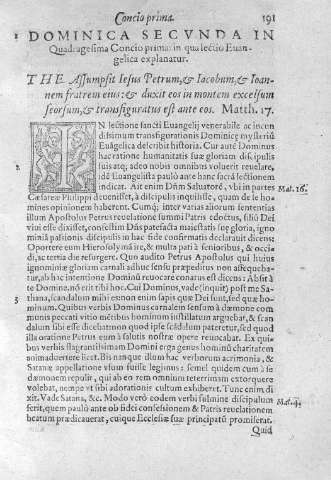 Concio prima. 191
1 DOMINICA SECVNDA IN
Quadragesima Concio prima: in qua lectio Euan-
gelica explanatur.
THE Assumpsit Iesus Petrum, & Iacobum, & Ioan-
nem fratrem eius: & duxit eos in montem excelsum
seorsum, & transfiguratus est ante eos. Matth. 17.
IN lectione sancti Euangelij venerabile ac incen
dissimum transfigurationis Dominicę mysteriũ
Euãgelica describit historia. Cur autē Dominus
hac ratione humanitatis suæ gloriam discipulis
suis atq; adeo nobis omnibus voluerit reuelare,
2 idē Euangelista paulò ante hanc sacrā lectionem
indicat. Ait enim Dñm Saluatorē, vbi in partes Mat. 16.
Cæsareæ Philippi deuenisset, à discipulis inquisisse, quam de se ho-
mines opinionem haberent. Cumq́; inter varias aliorum sententias
illum Apostolus Petrus reuelatione summi Patris edoctus, filiũ Dei
viui esse dixisset, confestim Dñs patefacta maiestatis suę gloria, igno
miniā passionis discipulis in hac fide confirmatis declarauit dicens:
Oportere eum Hierosolymā ire, & multa pati à senioribus, & occi-
di, ac tertia die resurgere. Quo audito Petrus Apostolus qui huius
ignominię gloriam carnali adhuc sensu præpeditus non assequeba-
tur, ab hac intentione Dominū reuocare conatus est dicens: Absit à
te Domine, nō erit tibi hoc. Cui Dominus, vade (inquit) post me Sa-
3 thana, scandalum mihi es: non enim sapis quæ Dei sunt, sed quæ ho-
minum. Quibus verbis Dominus carnalem sensum à dæmone com
munis peccati vitio mētibus hominum instillatum arguebat, & scan
dalum sibi esse dicebat: non quòd ipse scādalum pateretur, sed quod
illa oratione Petrus eum à salutis nostræ opere reuocabat. Ex qui-
bus verbis flagrantissimam Domini erga genus hominũ charitatem
animaduertere licet. Bis nanque illum hac verborum acrimonia, &
Satanæ appellatione vsum fuisse legimus: semel quidem cum à se
dæmonem repulit, qui ab eo rem omnium teterrimam extorquere
volebat, nempe vt sibi adorationis cultum exhiberet. Tunc enim di
xit. Vade Satana, &c. Modo verò eodem verbi fulmine discipulum Mat. 4.
ferit, quem paulò ante ob fidei confessionem & Patris reuelationem
beatum prædicauerat, cuique Ecclesiæ suæ principatũ promiserat.
Quid